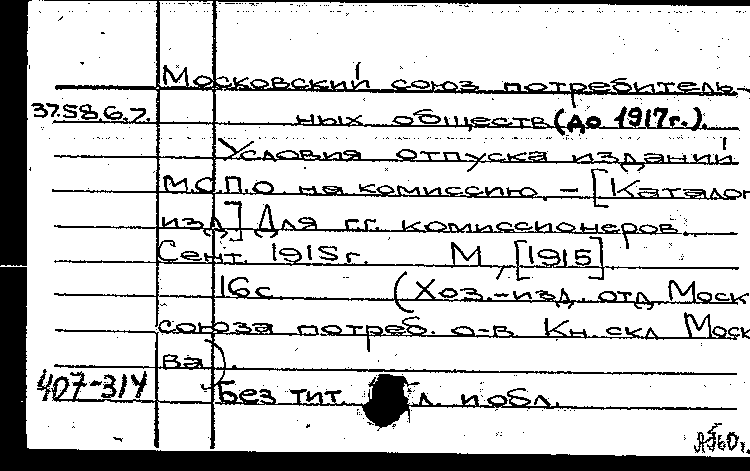 Московский союз потребитель-
37.58.6.7.
ных обществ (до 1917г.).
Условия отпуска изданий
М.С.П.О. на комиссию. – [Каталог
изд.] Для г.г. комиссионеров.
Сент. 1915г. М., [1915]
16с. (Хоз.-изд. отд. Моск
союза потреб. о-в. Кн. скл. Моск
ва).
407-314
Без тит. л. и обл.